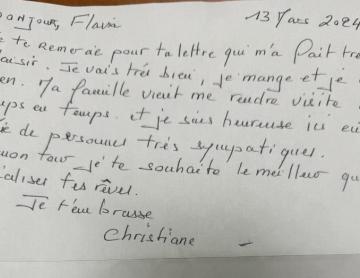 Bonjour, Flavi 13 Mars 2024
te remercie pour ta lettre qui m'a fait très
aisir. Je vais très bien, je mange et je
en. Ma famille vient me rendre visite
mps en temps. et je suis heureuse ici
de personnes très sympatiques.
mon tour je te souhaite le meilleur
aliser tes rêves.
Je t'embrasse
Christiane